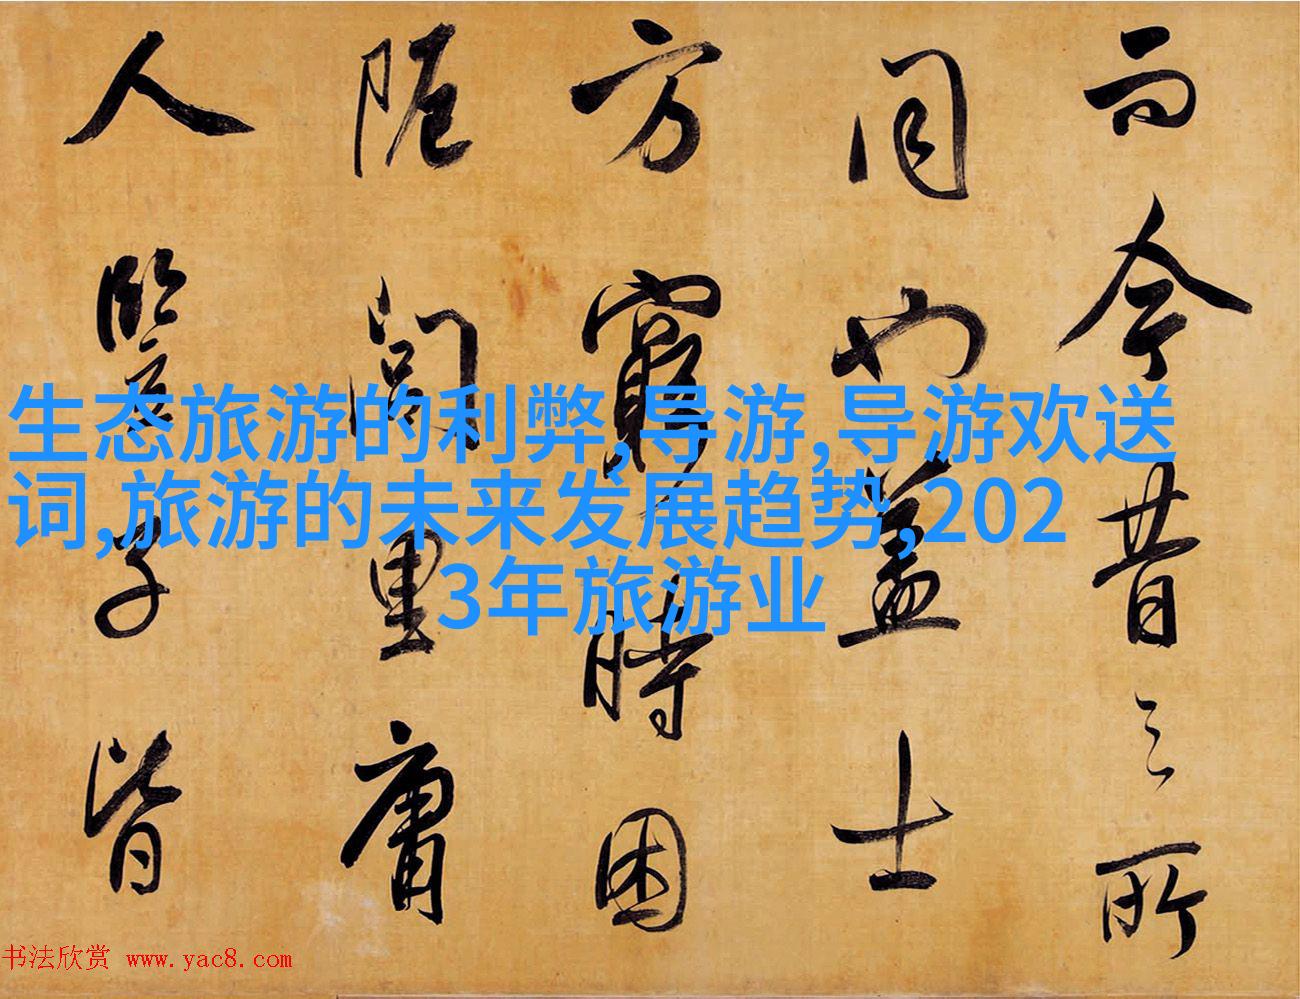 而今昔之所
同也蓋士
方窮時困
阨閭里庸
人豎子皆
生态旅游的利弊,导游,导游欢送
词,旅游的未来发展趋势,202
3年旅游业
书法欣赏 www.yac8.com